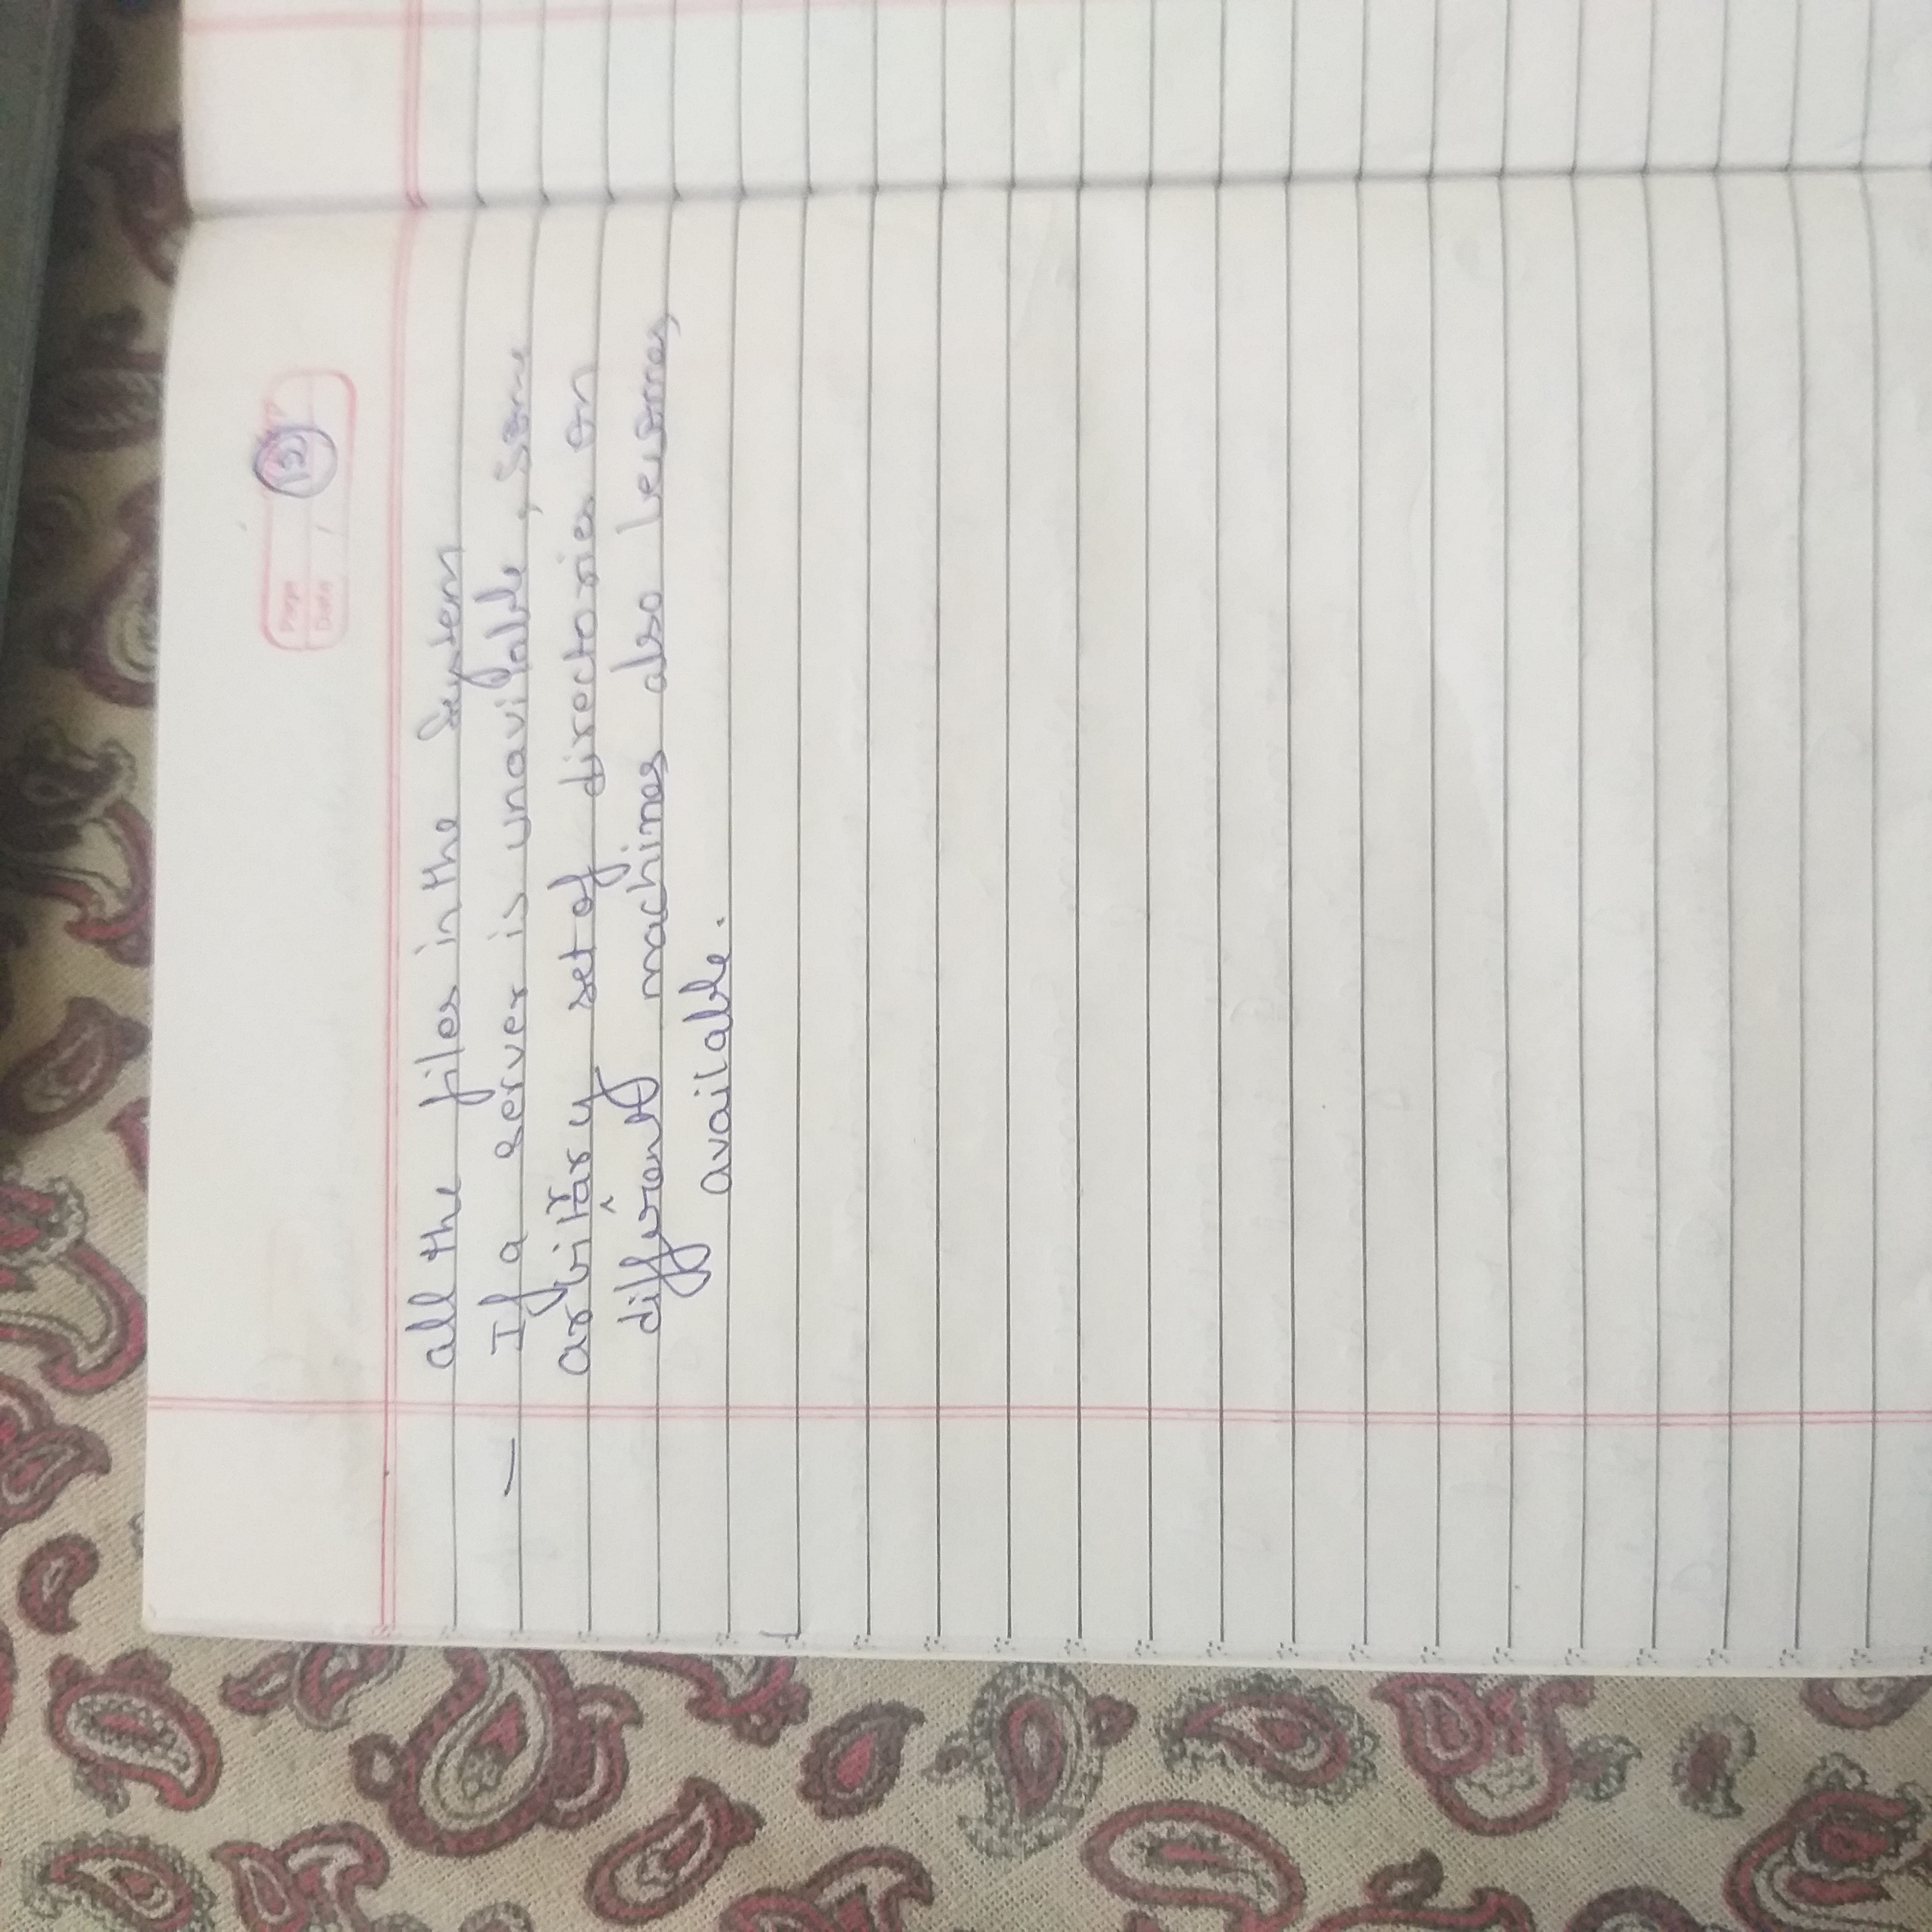 Page 15
Date / /
all the files in the system
— If a server is unavilable, some
arbitrary set of directories on
different machines also becomes
available.